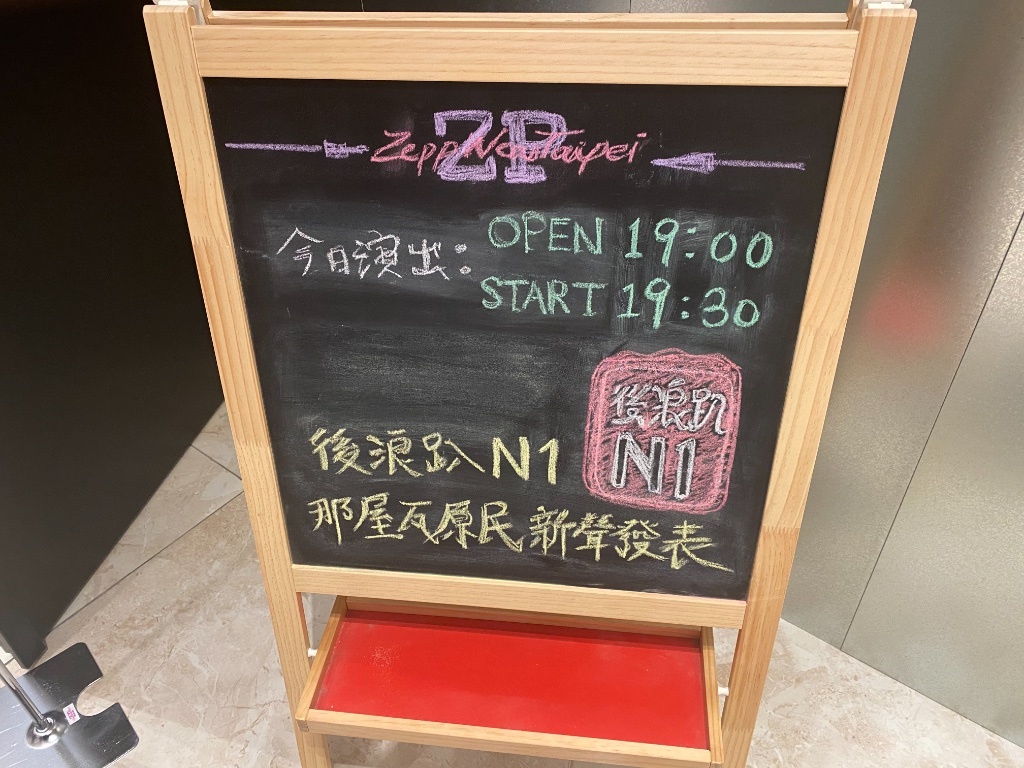 ZP
Zepp New Taipei
今日演出：
OPEN 19:00
START 19:30
後浪趴
N1
後浪趴 N1
那屋瓦原民新聲發表